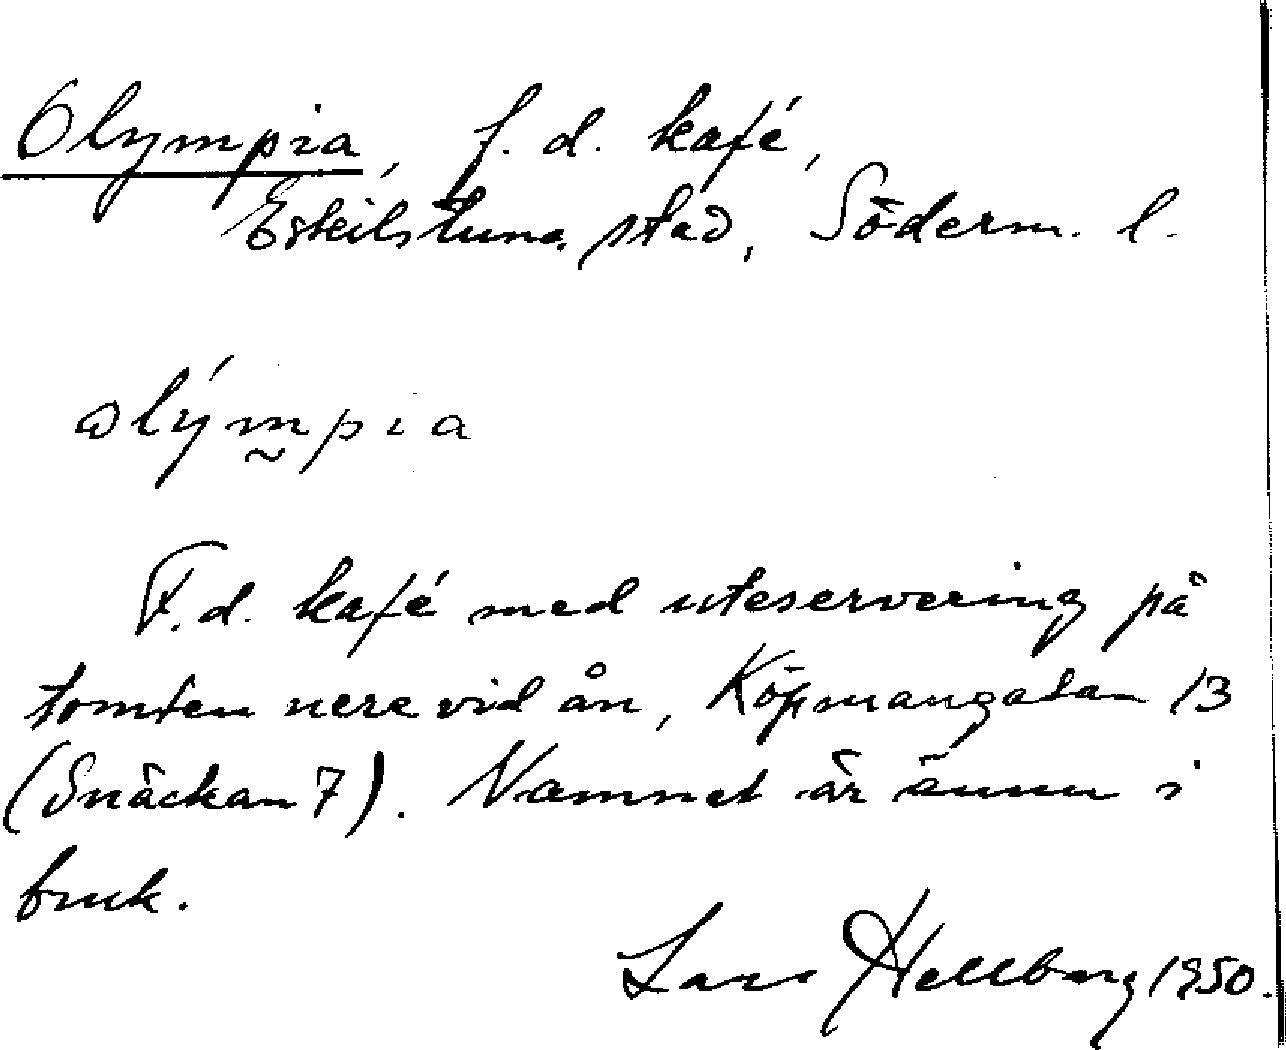 Olympia, f.d. kafé,
Eskilstuna stad, Söderm. l.
olým̰pia
F.d. kafé med uteservering på
tomten nere vid ån, Köpmangatan 13
(Snäckan 7). Namnet är ännu i
bruk.
Lars Hellberg 1950.